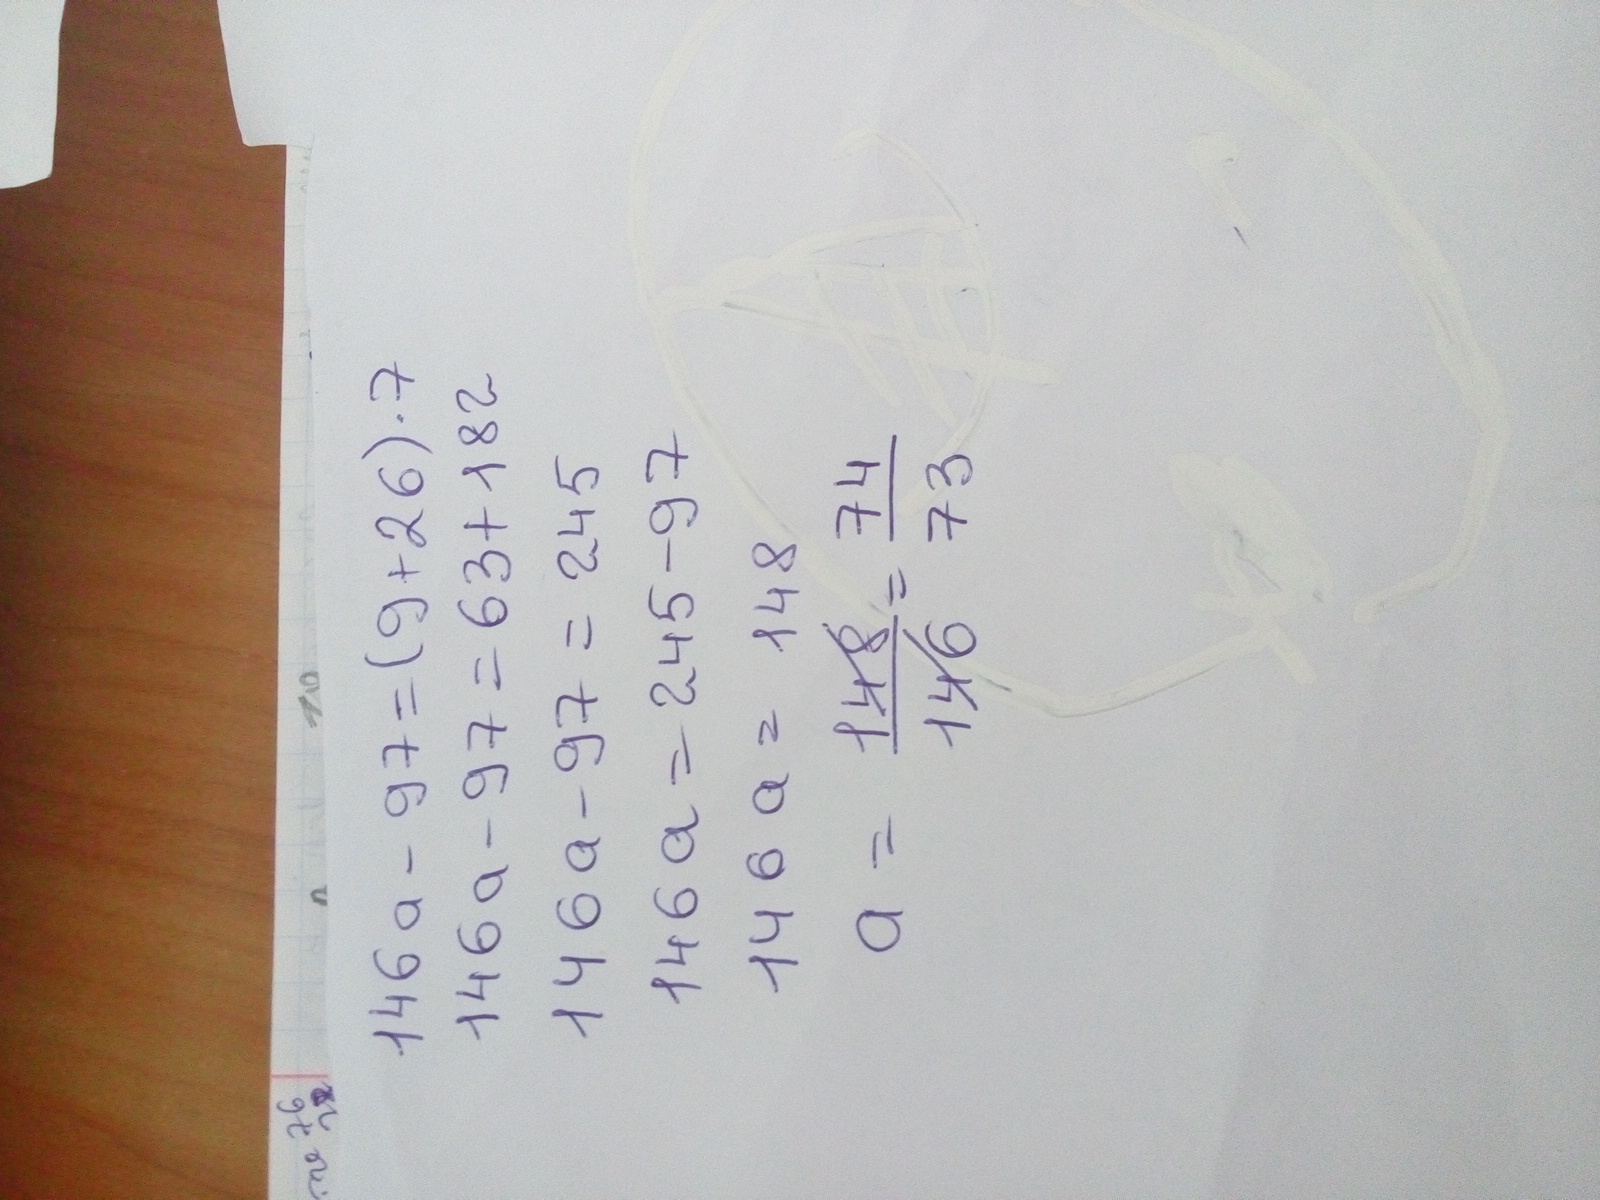 146a - 97 = (9+26).7
146a - 97 = 63 + 182
146a - 97 = 245
146a = 245 - 97
146a = 148
a = 148/146 = 74/73
76